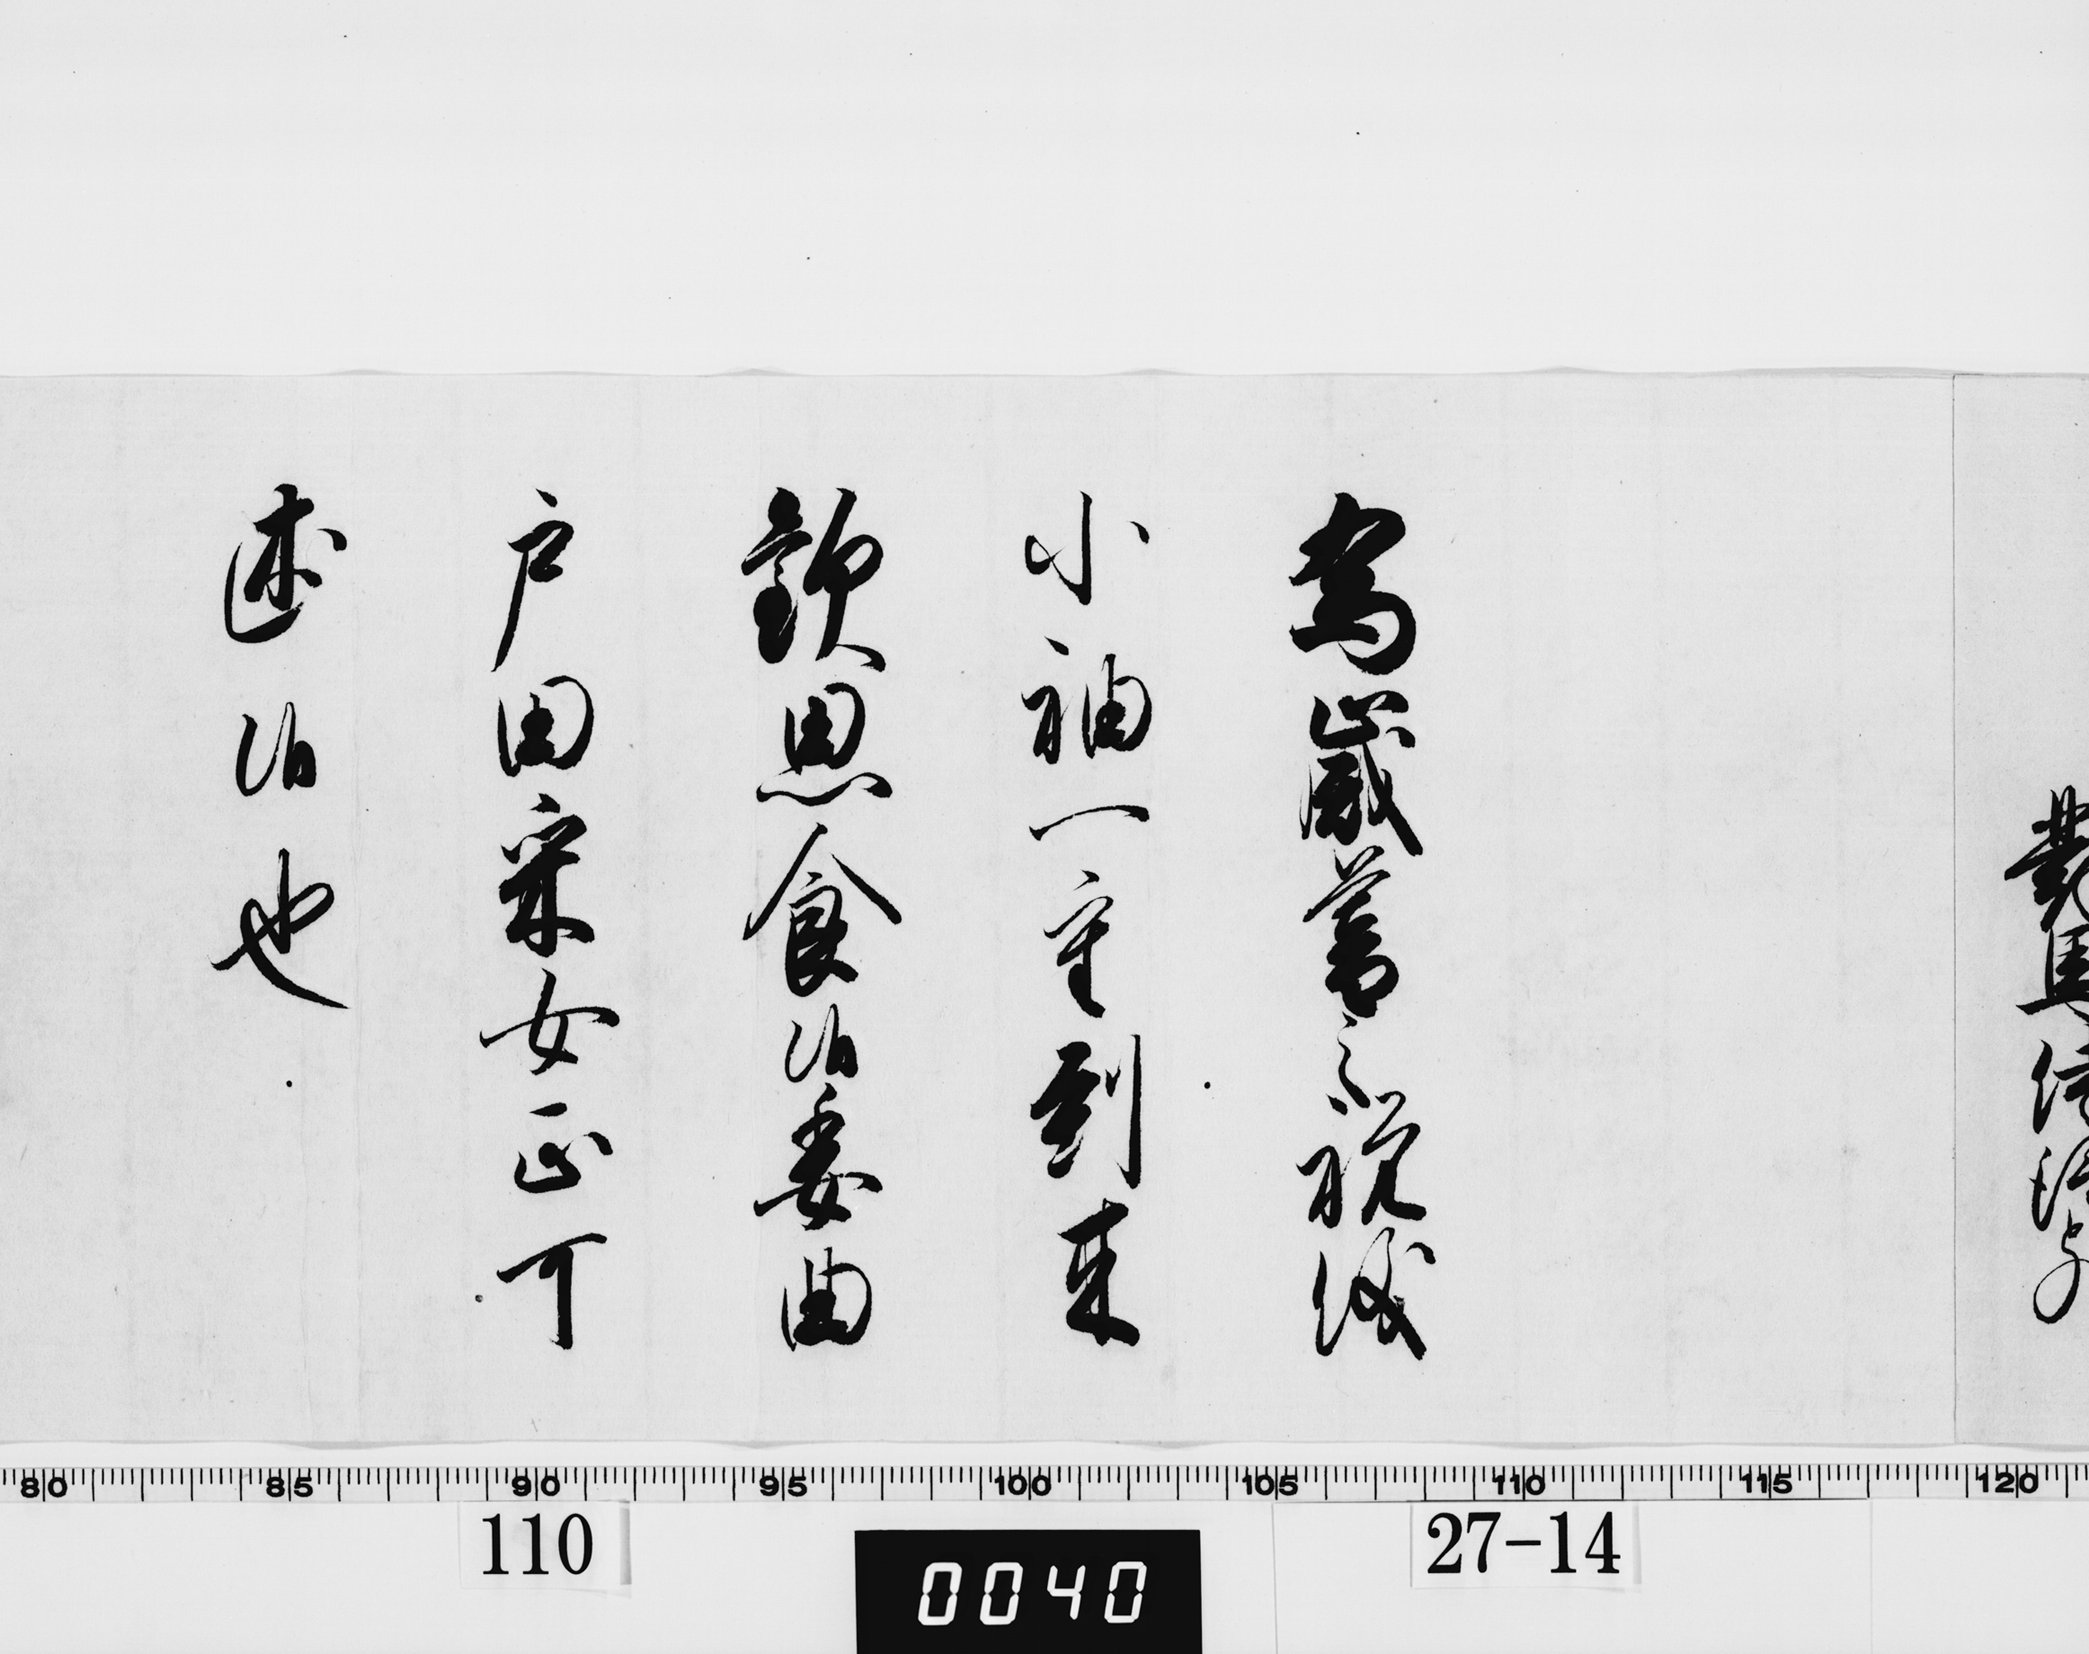 對馬侍従
為歳暮之祝儀
小袖一重到来
歓思食候委曲
戸田采女正可
述候也
80 85 90 95 100 105 110 115 120
110
0040
27-14